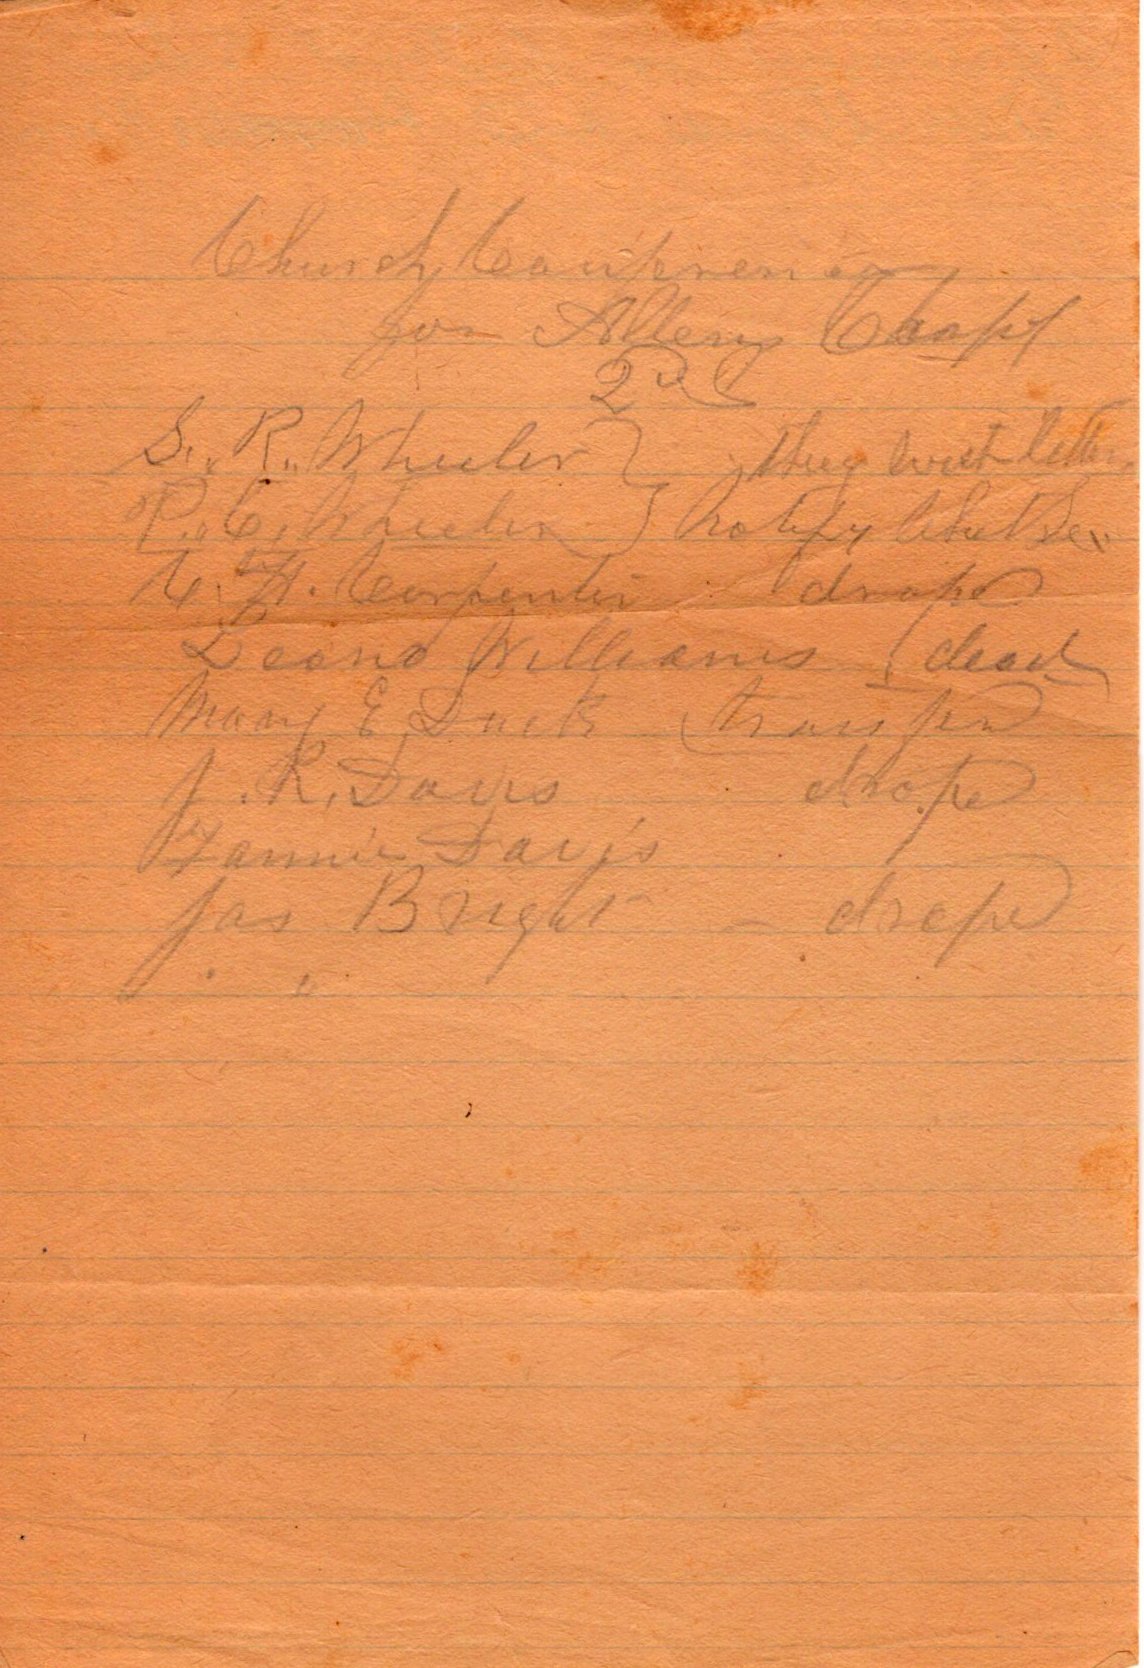 Church Conference
for Allens Chapl
2nd
S. R. Wheeler } they want letter
R. C. Wheeler } notify
C. H. Carpenter drope
Williams (dead
Mary E. Duck (transfer
J. R. Davis drope
Fannie Davis
Jas Bright - drope